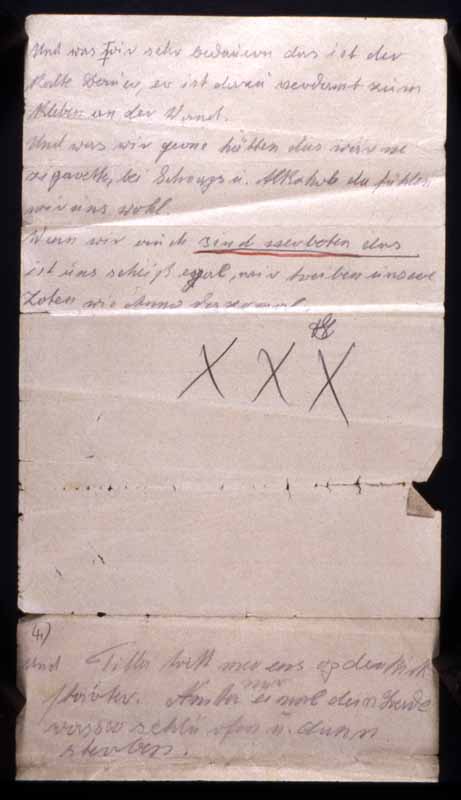 Und was wir sehr bedauern das ist der
Kalte Bauer, er ist dazu verdamt zum
Kleben an der Wand.
Und was wir gerne hätten das wär ne
zigarette, bei Schnaps u. Alkohols da fühlen
wir uns wohl.
Wenn wir auch sind verboten das
ist uns scheiß egal, wir treiben unsere
Zoten wie Anno dazumal.
X X X
4)
Und
mer ens op den
mal dein
u. dann
sterben.